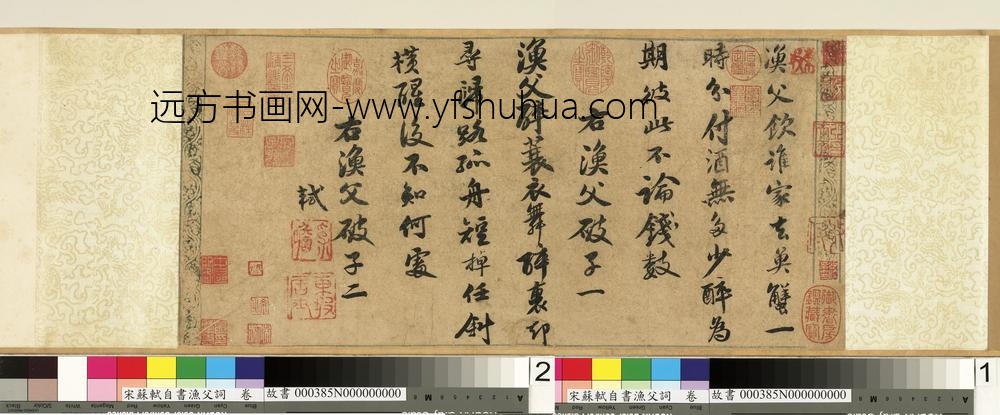 漁父飲誰家去魚蟹一
時分付酒無多少醉為
期彼此不論錢數
右漁父破子一
漁父醉蓑衣舞醉裏却
尋歸路孤舟短棹任斜
橫醒後不知何處
右漁父破子二
軾
東坡居士
远方书画网-www.yfshuhua.com
宋蘇軾自書漁父詞 卷 故書 000385N000000000
2
宋蘇軾自書漁父詞 卷 故書 000385N000000000
1